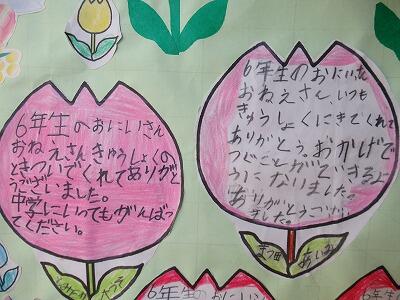 6年生のおにいさん
おねえさんきゅうしょくの
ときついでくれてありがと
うございました。
中学にいってもがんばっ
てください。
6年生のおにいさん
おねえさん、いつも
きゅうしょくにきてくれて
ありがとう。おかげで
つぐことができるよ
うになりました。
ありがとうござい
ました。
まつ田
あいみ
6年生のおにいさん
6年生の